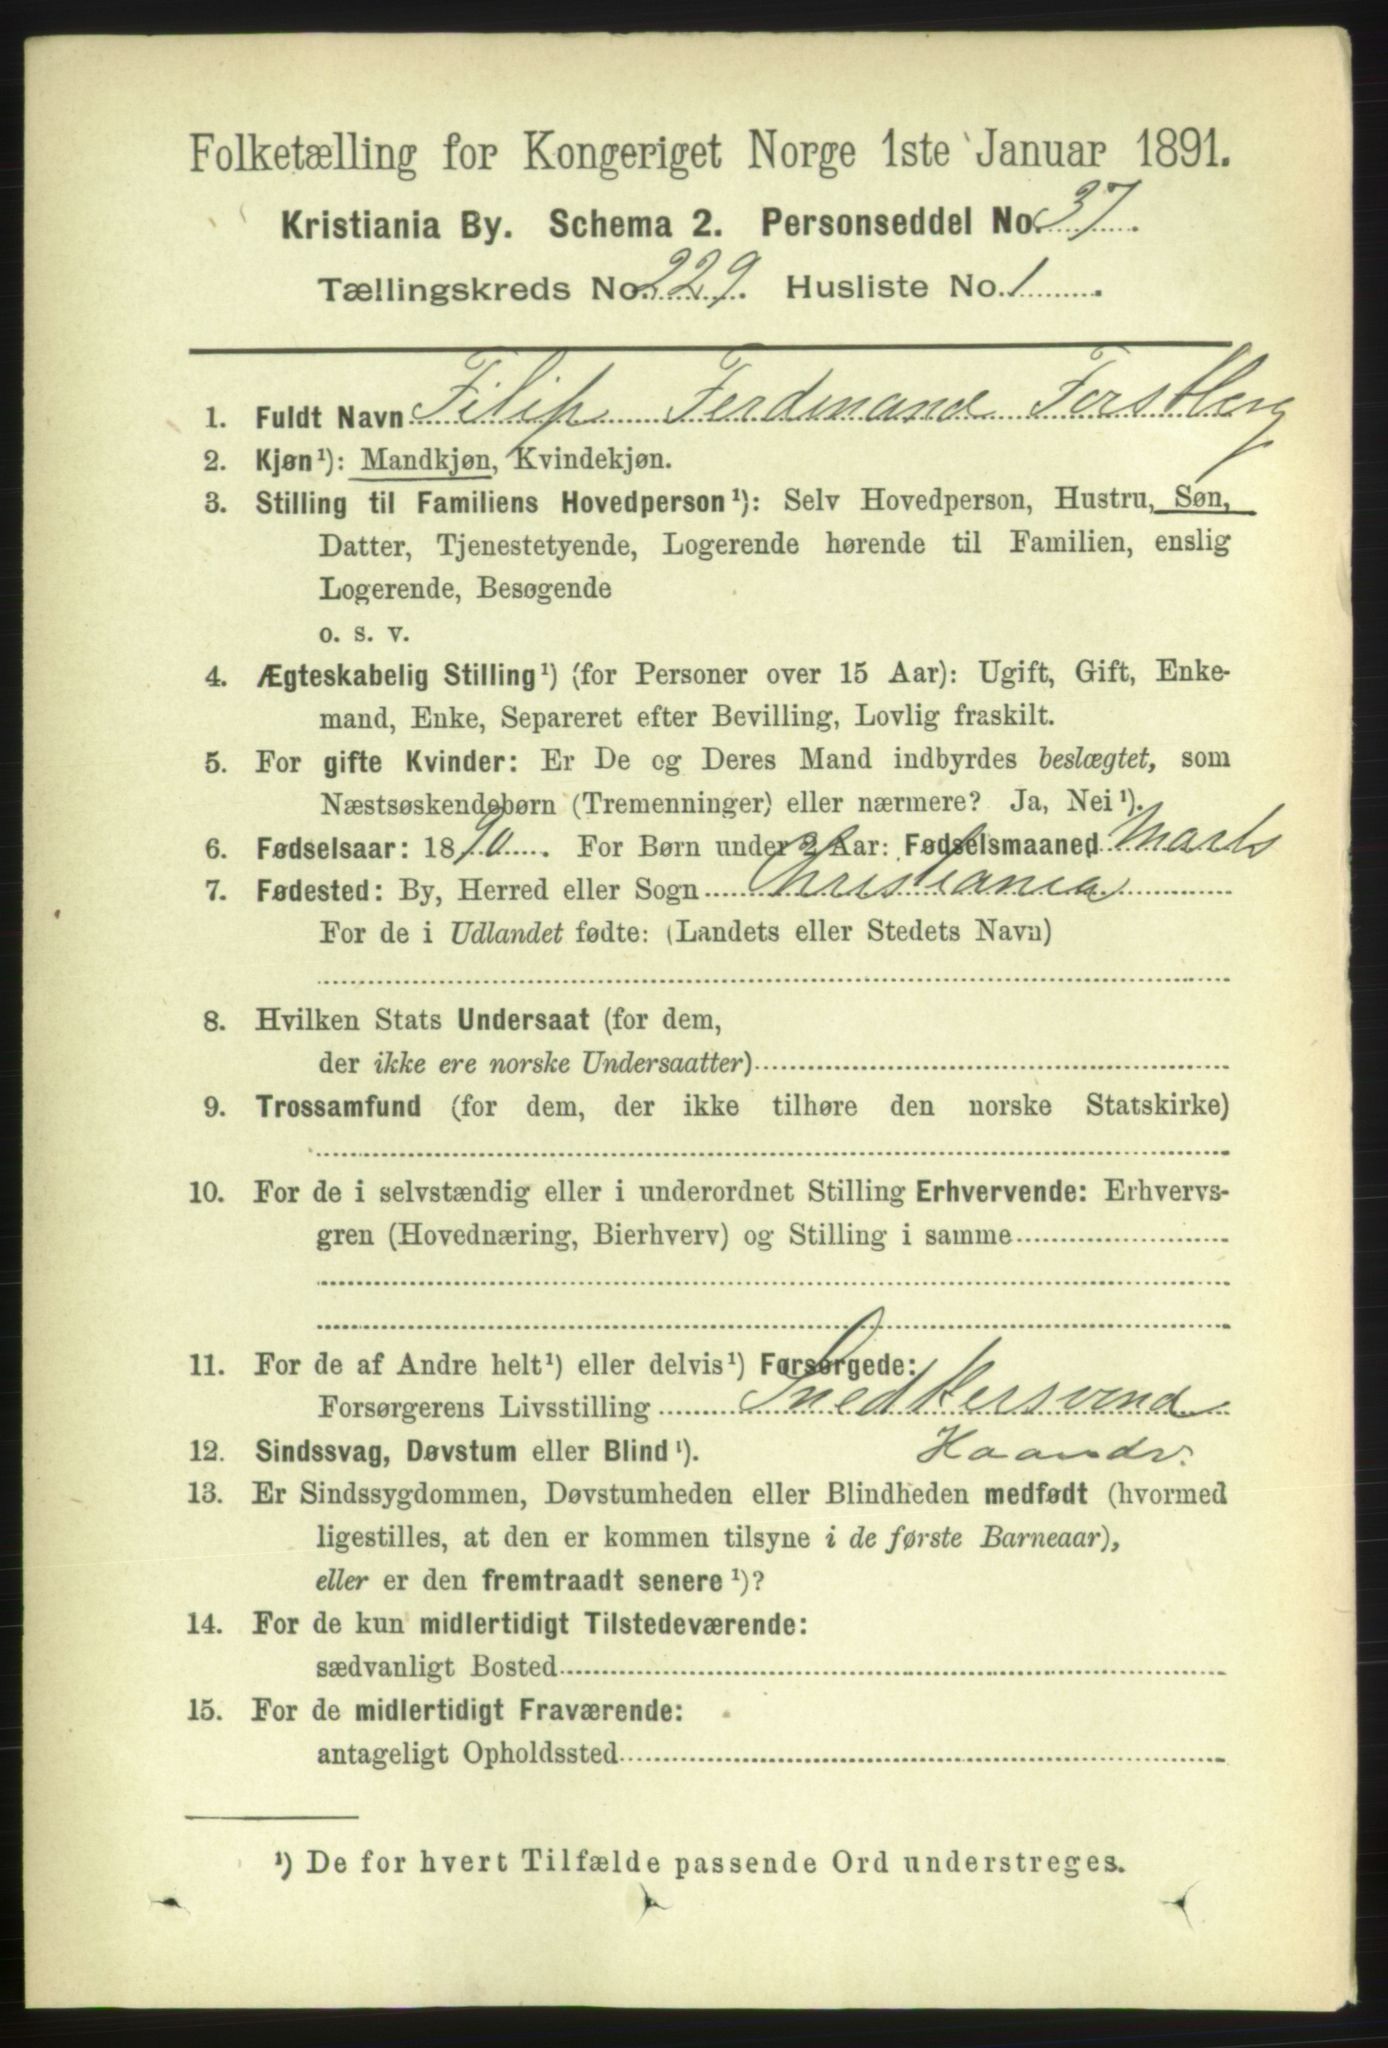 Folketælling for Kongeriget Norge 1ste Januar 1891.
Kristiania By. Schema 2. Personseddel No. 37.
Tællingskreds No. 229. Husliste No. 1.
1. Fuldt Navn Filip Ferdinand Forstberg
2. Kjøn¹): Mandkjøn, Kvindekjøn.
3. Stilling til Familiens Hovedperson¹): Selv Hovedperson, Hustru, Søn,
Datter, Tjenestetyende, Logerende hørende til Familien, enslig
Logerende, Besøgende
o. s. v.
4. Ægteskabelig Stilling¹) (for Personer over 15 Aar): Ugift, Gift, Enke-
mand, Enke, Separeret efter Bevilling, Lovlig fraskilt.
5. For gifte Kvinder: Er De og Deres Mand indbyrdes beslægtet, som
Næstsøskendebørn (Tremenninger) eller nærmere? Ja, Nei¹).
6. Fødselsaar: 1890. For Børn under 2 Aar: Fødselsmaaned Marts
7. Fødested: By, Herred eller Sogn Christiania
For de i Udlandet fødte: (Landets eller Stedets Navn)
8. Hvilken Stats Undersaat (for dem,
der ikke ere norske Undersaatter)
9. Trossamfund (for dem, der ikke tilhøre den norske Statskirke)
10. For de i selvstændig eller i underordnet Stilling Erhvervende: Erhvervs-
gren (Hovednæring, Bierhverv) og Stilling i samme
11. For de af Andre helt¹) eller delvis¹) Forsørgede:
Forsørgerens Livsstilling Snedkersvend
12. Sindssvag, Døvstum eller Blind¹). Haandv.
13. Er Sindssygdommen, Døvstumheden eller Blindheden medfødt (hvormed
ligestilles, at den er kommen tilsyne i de første Barneaar),
eller er den fremtraadt senere¹)?
14. For de kun midlertidigt Tilstedeværende:
sædvanligt Bosted
15. For de midlertidigt Fraværende:
antageligt Opholdssted
¹) De for hvert Tilfælde passende Ord understreges.